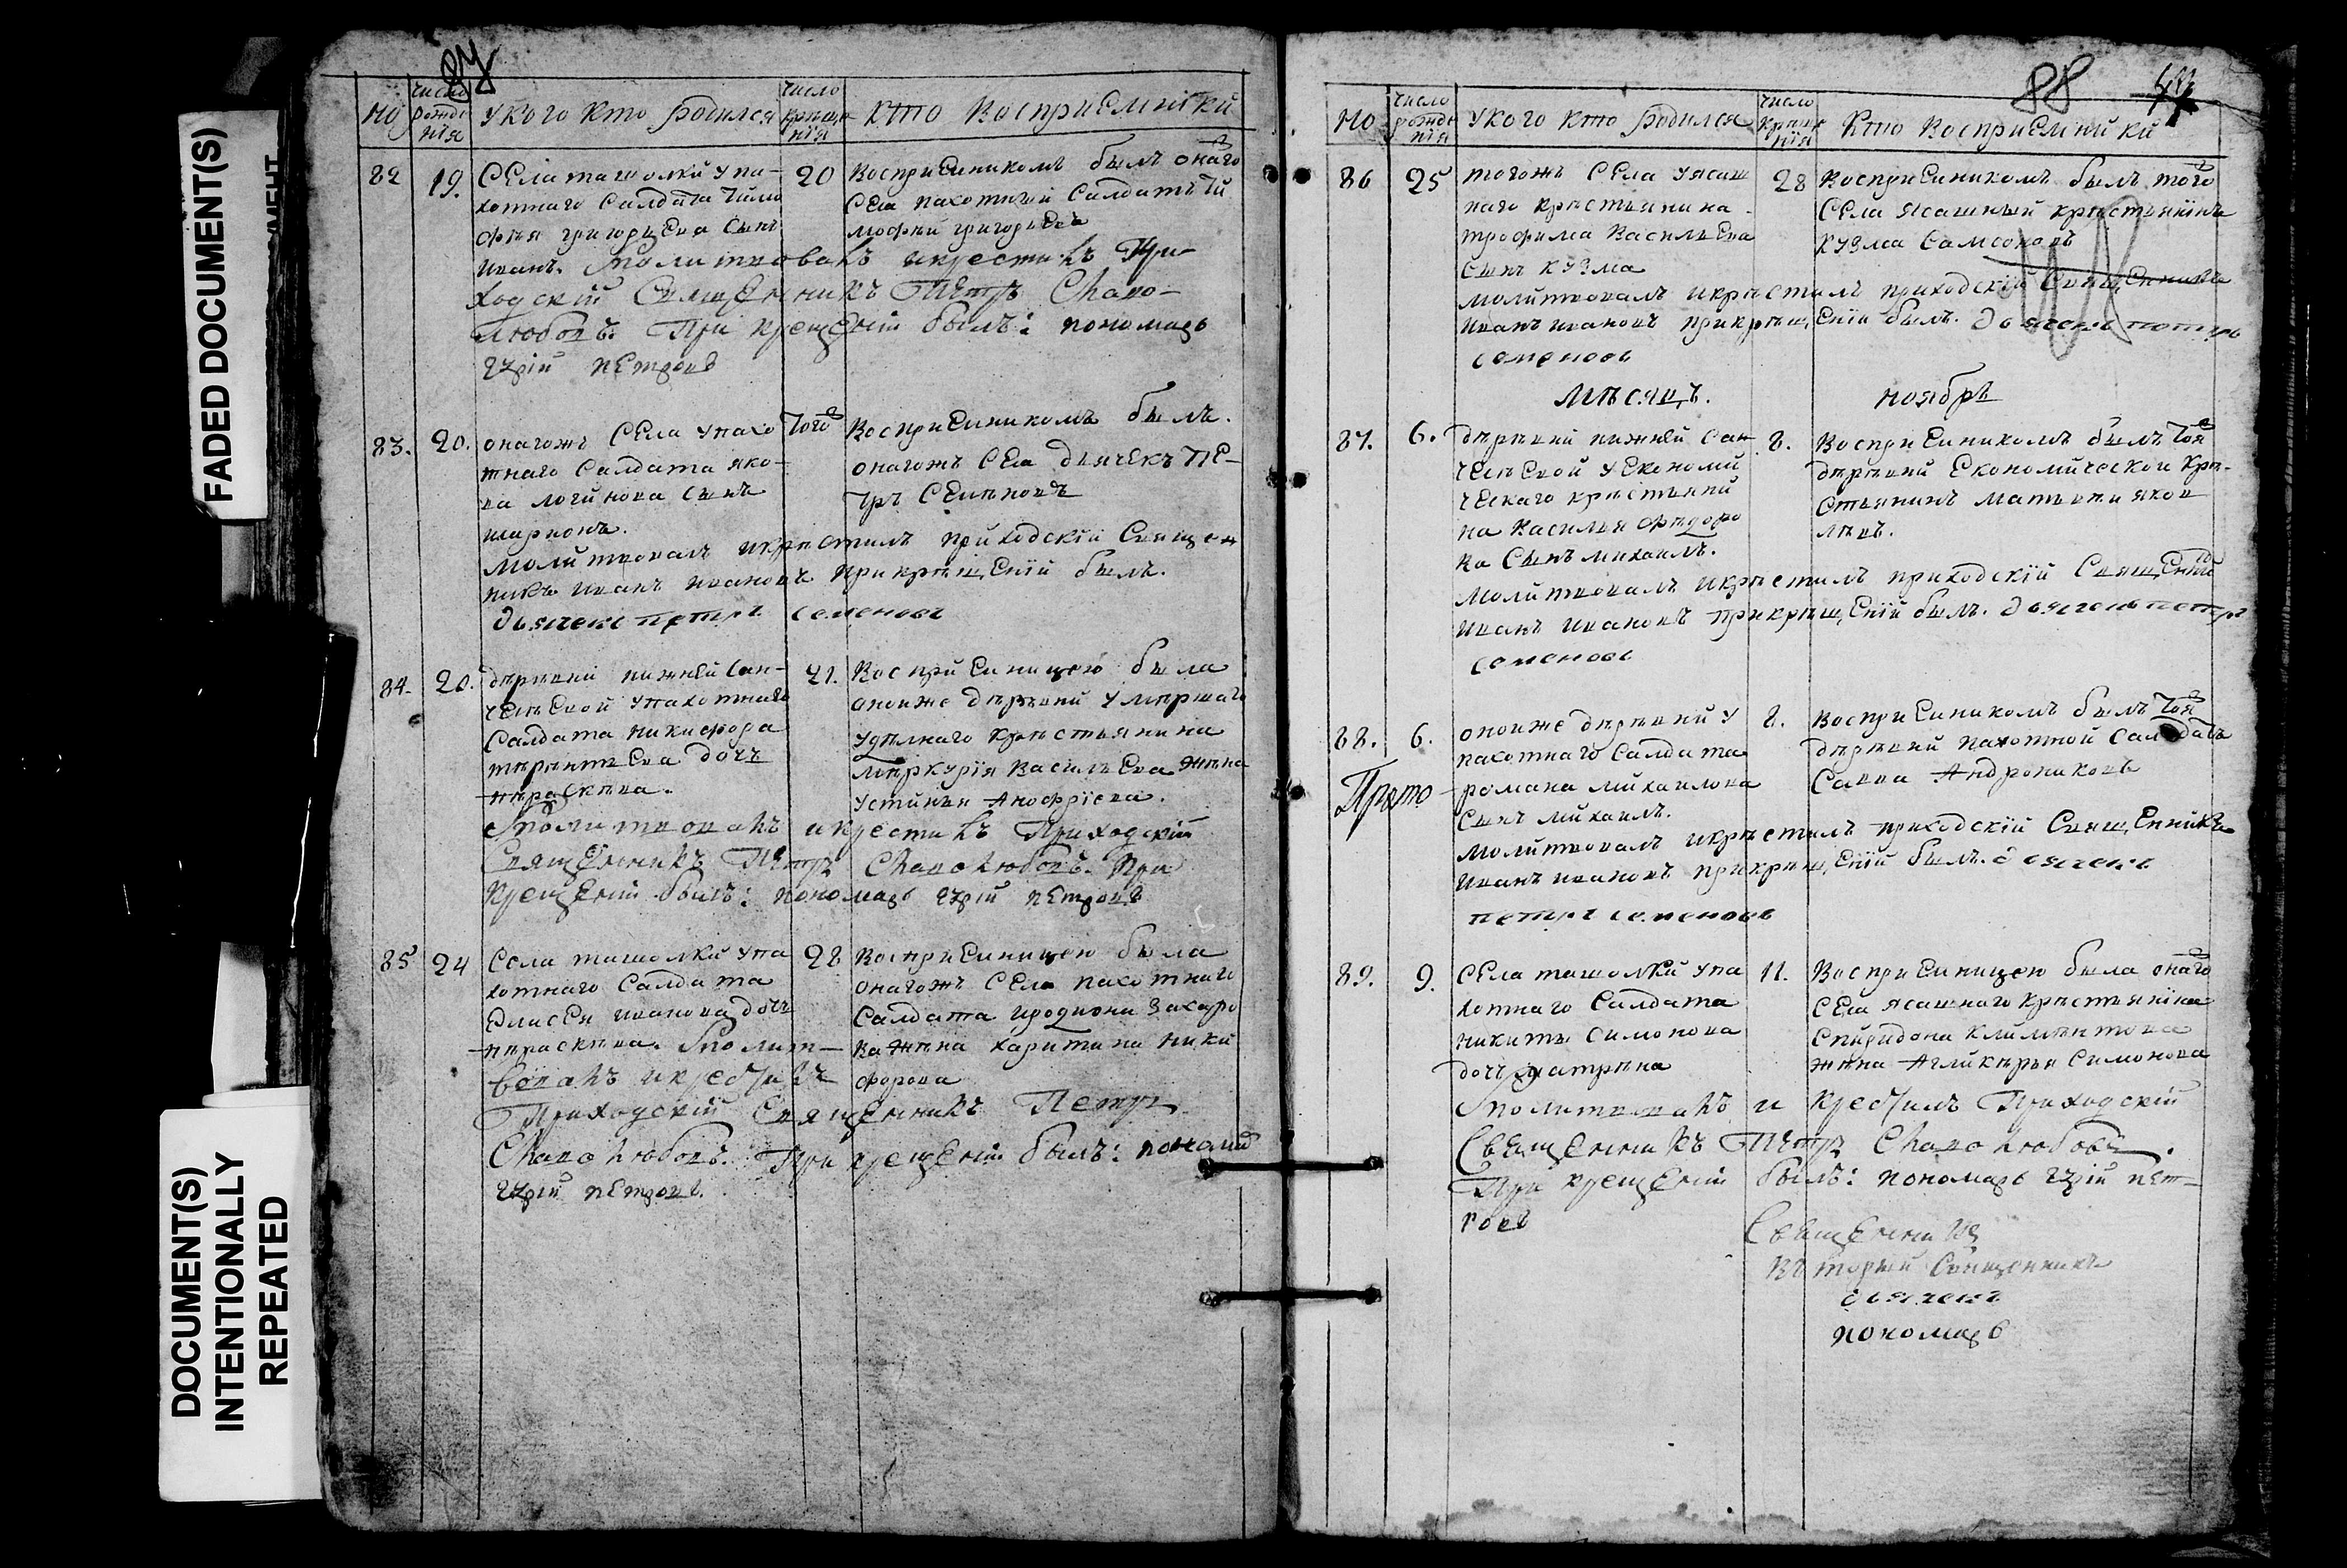 FADED DOCUMENT(S)
DOCUMENT(S)
INTENTIONALLY
REPEATED
но
число рожде нія
у кого кто родился
число крѣще нія
кто восприемники
82
19.
Села ташолки у па-
хотнаго салдата тимо
фѣя григорьева сынъ
иванъ. Молитвовалъ и крестилъ При-
ходскій Священникъ Петръ Славо-
любовъ. При крещеніи былъ: пономарь
гурій петровъ
20
восприемникомъ былъ онаго
села пахотный салдатъ ти
мофѣй григорьевъ
83.
20.
онагожъ села у пахо
тнаго салдата яко-
ва логинова сынъ
иларионъ.
молитвовалъ и крѣстилъ приходскїй священ
никъ иванъ ивановъ при крѣщ,ении былъ.
дьячекъ петръ семеновъ
того
восприемникомъ былъ.
онагожъ села дьячекъ пе-
тръ семѣновъ
84.
20.
дѣрѣвни нижней сан-
челѣевой у пахотнаго
салдата никифора
тѣрѣнтьева дочь
пѣраскѣва.
Молитвовалъ и крестилъ Приходскій
Священникъ Петръ Славолюбовъ. При
крещеніи былъ: пономарь гурій петровъ
21.
восприемницею была
оноиже дѣрѣвни умѣршаго
удѣлнаго крѣстьянина
мѣркурїя васильева жѣна
устинья анофрїева.
85
24
Села ташолки у па
хотнаго салдата
елисея иванова дочь
пѣраскѣва. Молит-
вовалъ и крестилъ
Приходскій Священникъ Петръ
Славолюбовъ. При крещеніи былъ: пономарь
гурій петровъ.
28
восприемницею была
онагожъ села пахотнаго
салдата иродиона захаро
ва жѣна харитина ники
форова
88
но
число рожде нія
у кого кто родился
число крѣще нія
кто восприемники
86
25
тогожъ села у ясаш
наго крѣстьянина
трофима васильева
сынъ кузма
молитвовалъ и крѣстилъ приходскїй священникъ
иванъ ивановъ при крѣщ,ении былъ. дьячекъ петръ
семеновъ
28
восприемникомъ былъ того
села ясашный крѣстьянїнъ
кузма самсоновъ
мѣсяцъ.
ноябрь
87.
6.
дѣрѣвни нижней сан
челѣевой у економи
ческаго крѣстьяни
на василья фѣдоро
ва сынъ михаилъ.
молитвовалъ и крѣстилъ приходскїй священникъ
иванъ ивановъ при крѣщ,ении былъ. дьячекъ петръ
семеновъ
8.
восприемникомъ былъ той
дѣрѣвни економической крѣ-
стьянинъ матьвѣи яков
лѣвъ.
88.
6.
оноиже дѣрѣвни у
пахотнаго салдата
романа михаилова
сынъ михаилъ.
молитвовалъ и крѣстилъ приходскїй священникъ
иванъ ивановъ при крѣщ,ении былъ. дьячекъ
петръ семеновъ
8.
восприемникомъ былъ той
дѣрѣвни пахотной салдатъ
савва андрониковъ
89.
9.
Села ташолки у па
хотнаго салдата
никиты симонова
дочь матрѣна
Молитвовалъ и крестилъ Приходскій
Священникъ Петръ Славолюбовъ.
При крещеніи былъ: пономарь гурій пет-
ровъ
11.
восприемницею была онаго
села ясашнаго крѣстьянїна
спиридона климѣнтова
жѣна агликѣрья симонова
Священникъ
вторый Священникъ
дьячекъ
пономарь